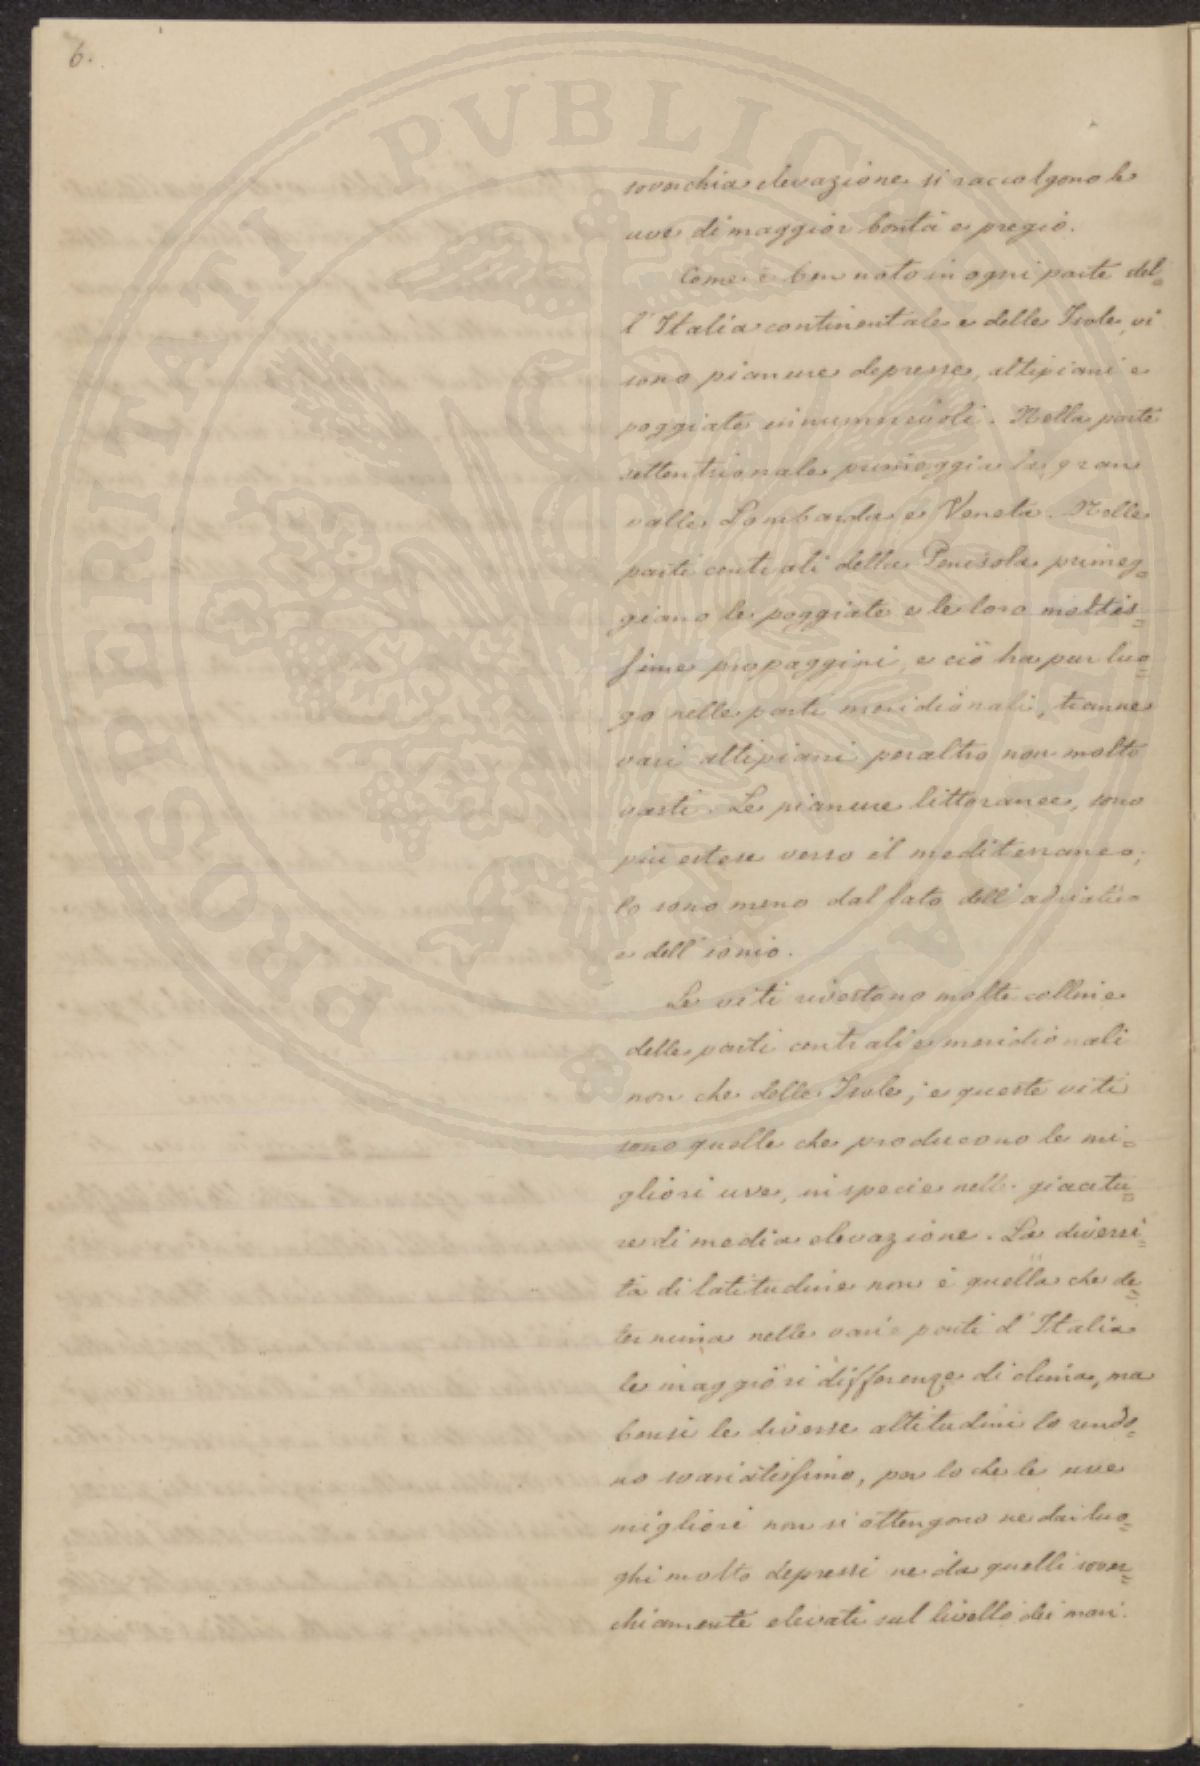 6.
soverchia elevazione si raccolgono le
uve di maggior bontà e pregio.
Come è ben noto in ogni parte del=
l'Italia continentale e delle Isole, vi
sono pianure depresse, altipiani e
poggiate innumerevoli. Nella parte
settentrionale primeggia la gran
valle Lombarda e Veneta. Nelle
parti centrali della Penisola primeg=
giano le poggiate e le loro moltis=
sime propaggini, e ciò ha pur luo=
go nelle parti meridionali, tranne
vari altipiani peraltro non molto
vasti. Le pianure littoranee, sono
più estese verso il mediterraneo,
lo sono meno dal lato dell'adriatico
e dell'ionio.
Le viti rivestono molte colline
delle parti centrali e meridionali
non che delle Isole; e queste viti
sono quelle che producono le mi=
gliori uve, in specie nelle giacitu=
re di media elevazione. La diversi=
tà di latitudine non è quella che de=
termina nelle varie parti d'Italia
le maggiori differenze di clima, ma
bensì le diverse altitudini lo rendo=
no svariatissimo, per lo che le uve
migliori non si ottengono ne dai luo=
ghi molto depressi ne da quelli sover=
chiamente elevati sul livello dei mari.
PROSPERITATI PUBLICAE AUGENDAE